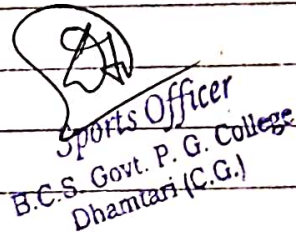 Sports Officer
B.C.S. Govt. P. G. College
Dhamtari (C.G.)